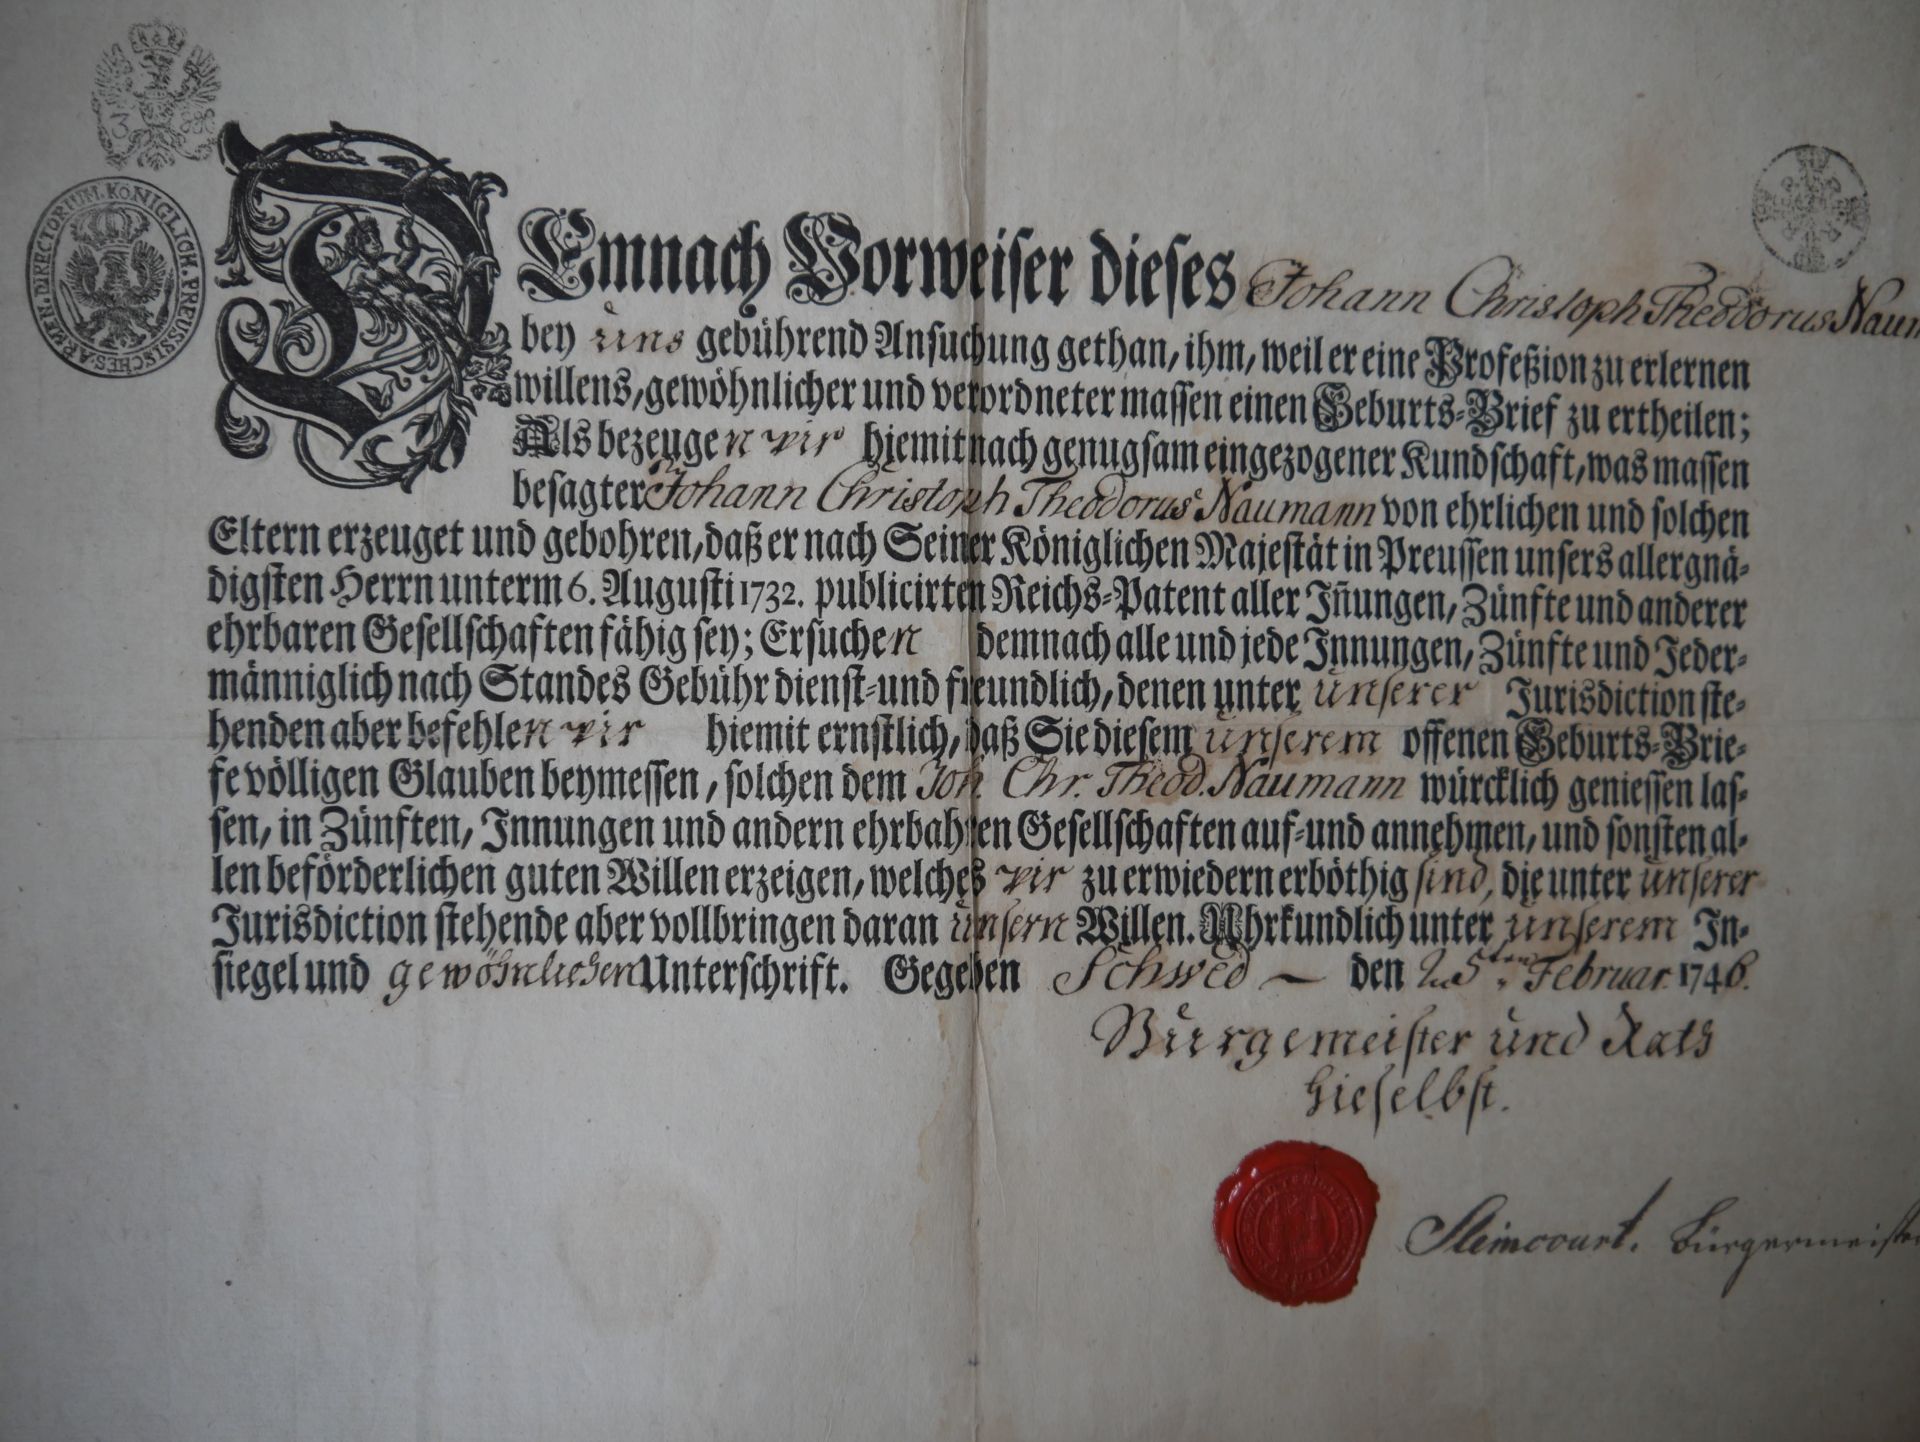 3
ARMEN.DIRECTORIUM. KÖNIGLICH. PREUSSISCHES.
DEmnach Vorweiser dieses Johann Christoph Theodorus Naum
bey uns gebührend Ansuchung gethan, ihm, weil er eine Profeßion zu erlernen
willens, gewöhnlicher und verordneter massen einen Geburts-Brief zu ertheilen;
Als bezeugen wir hiemit nach genugsam eingezogener Kundschaft, was massen
besagter Johann Christoph Theodorus Naumann von ehrlichen und solchen
Eltern erzeuget und gebohren, daß er nach Seiner Königlichen Majestät in Preussen unsers allergnä-
digsten Herrn unterm 6. Augusti 1732. publicirten Reichs-Patent aller Iñungen, Zünfte und anderer
ehrbaren Gesellschaften fähig sey; Ersuchen demnach alle und jede Innungen, Zünfte und Jeder-
männiglich nach Standes Gebühr dienst-und freundlich, denen unter unserer Jurisdiction ste-
henden aber befehlen wir hiemit ernstlich, daß Sie diesem unserem offenen Geburts-Brie-
fe völligen Glauben beymessen, solchen dem Joh. Chr. Theod. Naumann würcklich geniessen las-
sen, in Zünften, Innungen und andern ehrbahren Gesellschaften auf-und annehmen, und sonsten al-
len beförderlichen guten Willen erzeigen, welches wir zu erwiedern erböthig sind, die unter unserer
Jurisdiction stehende aber vollbringen daran unsern Willen. Uhrkundlich unter unserem In-
siegel und gewöhnlichen Unterschrift. Gegeben Schwed – den 25ten Februar. 1746.
Burgemeister und Rath
hieselbst.
Bürgermeister